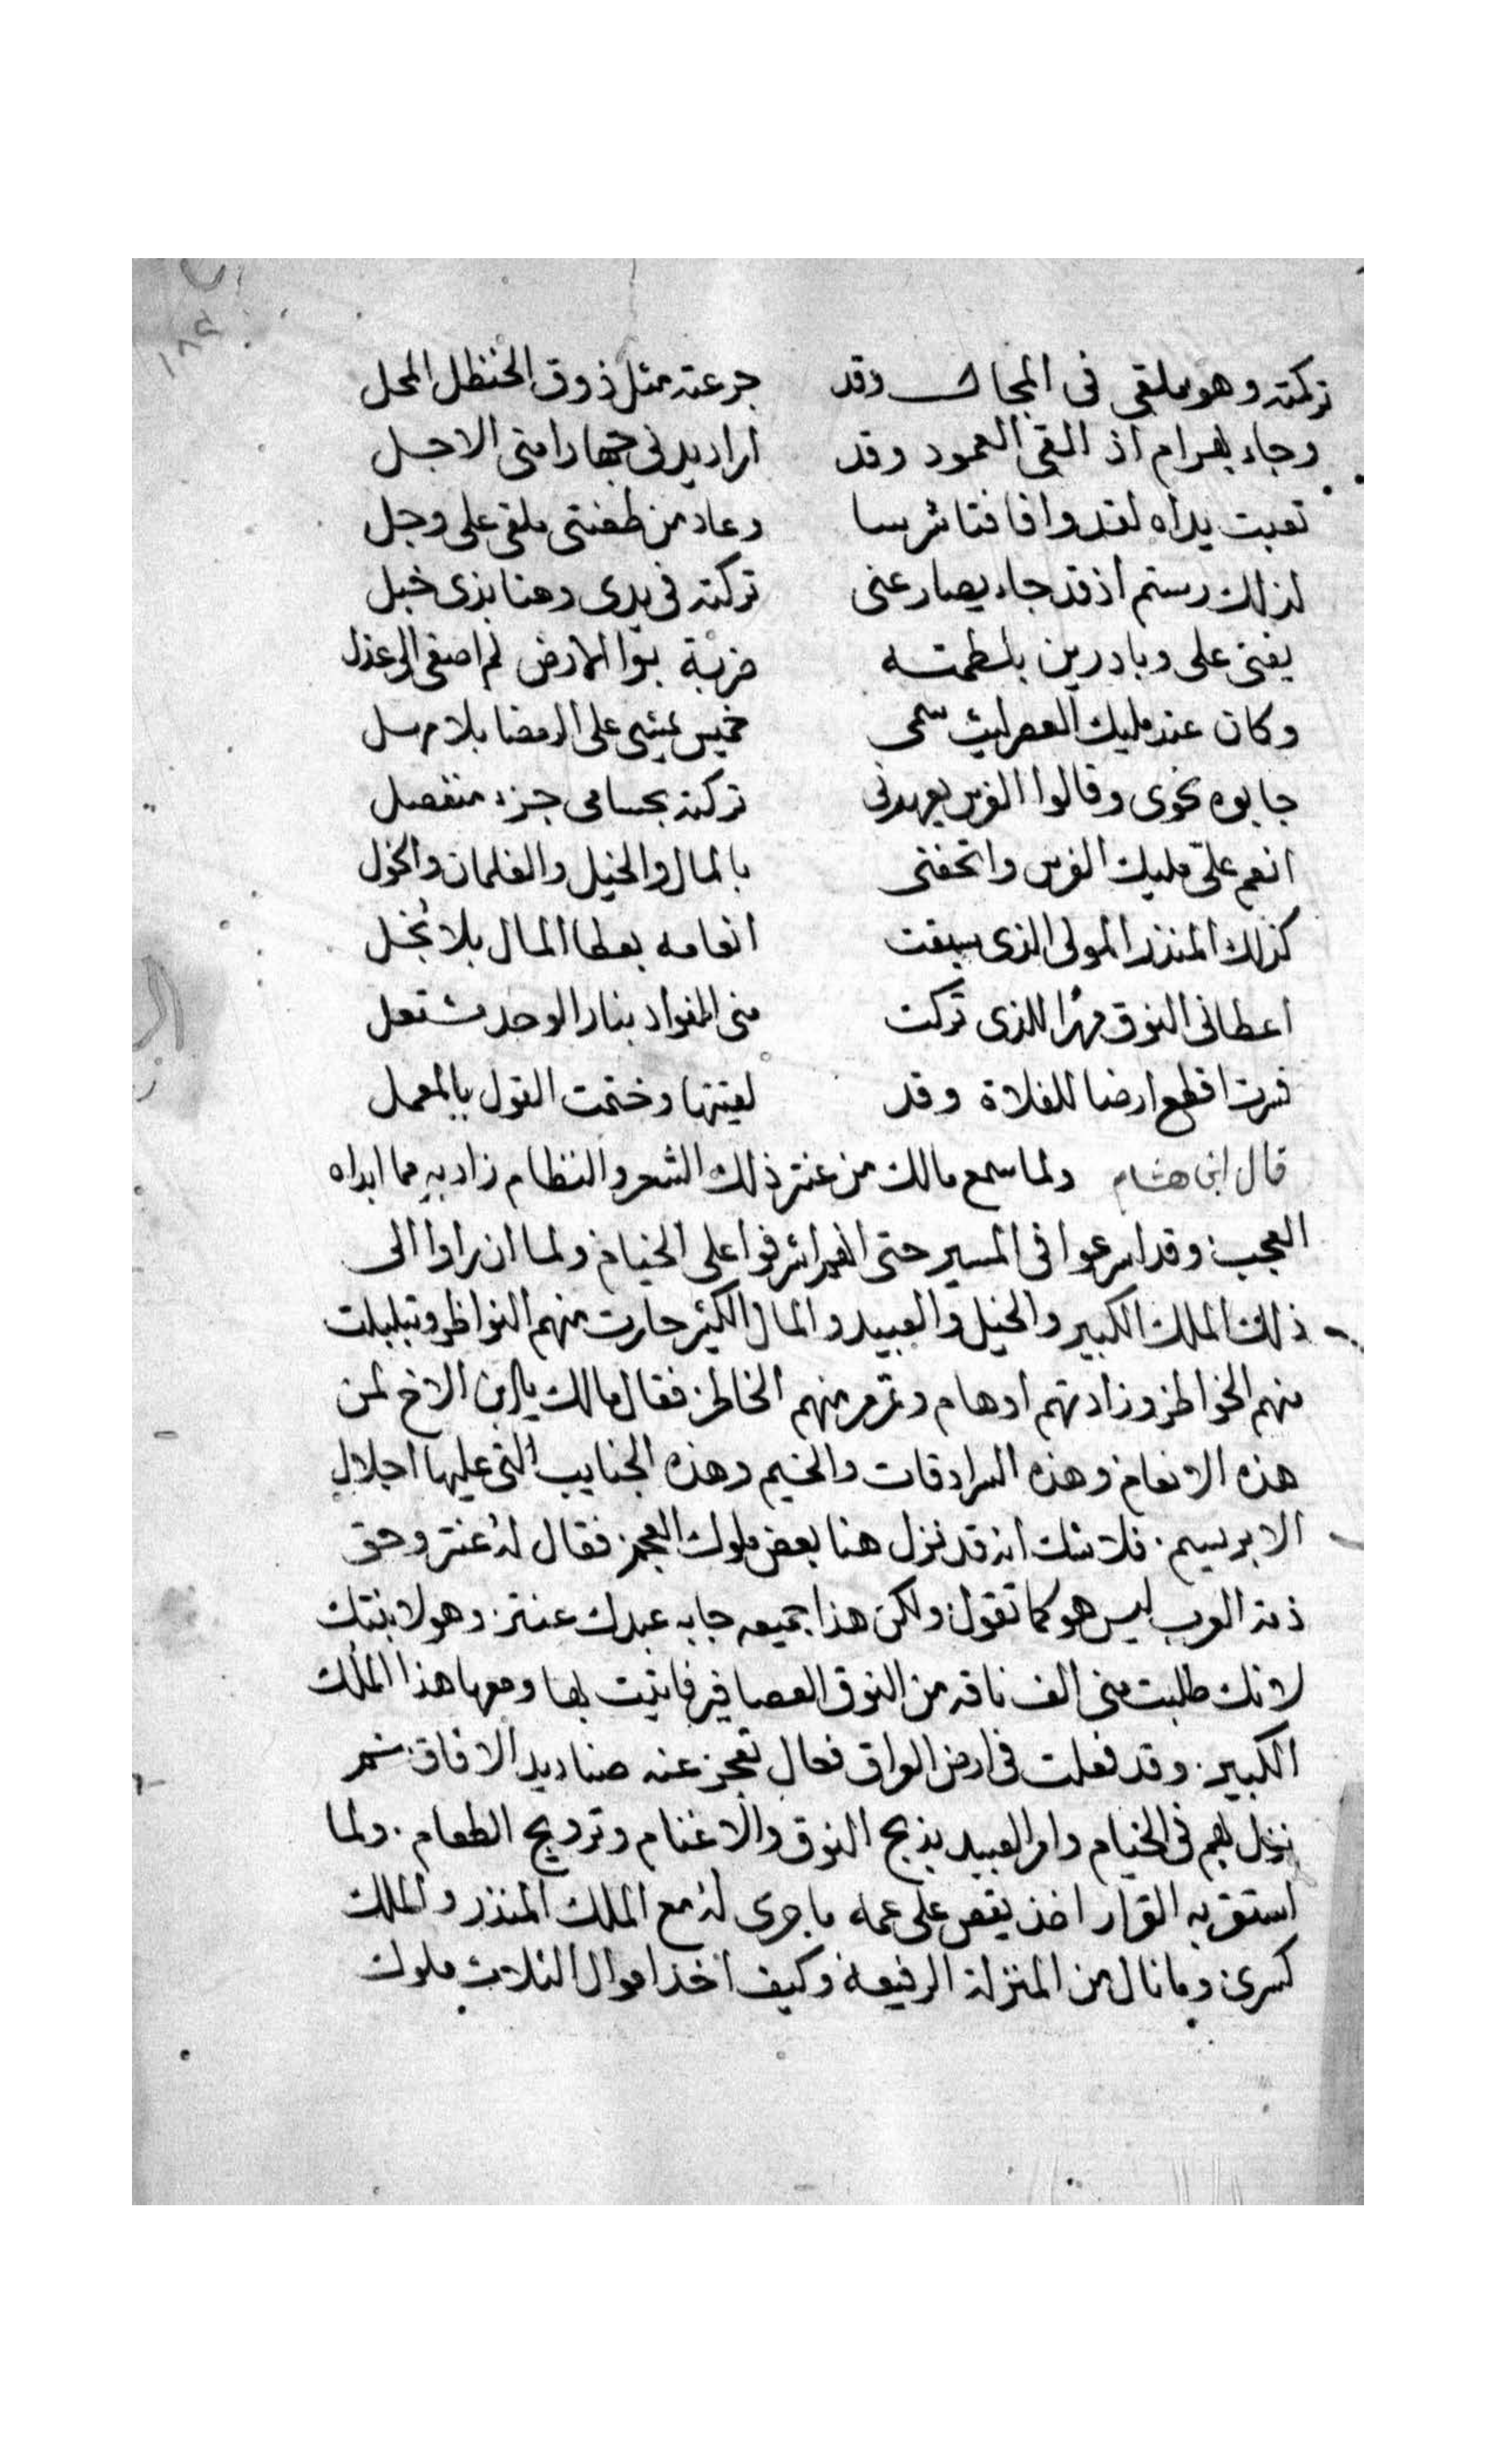 ١٨٤
تركته وهو ملقى فى المجال وقد جرعته مثل ذوق الحنظل المحل
وجاء بهرام اذ القى العمود وقد اراد يدنى جهارا منى الاجل
تعبت يداه لقد وافا فتا شرسا وعاد من طعنتى ملقى على وجل
لذلك رستم اذ قد جاء يصارعنى تركته فى يدى رهنا بذى خبل
يفتى على وبادرين بلطمته ضربة بوا الارض لم اصغى الى عذل
وكان عند مليك العصر ليث سمى خميس يمشى على الرمضا بلا مهل
جابوه نحوى وقالوا الفرس يعهدنى تركته بحسامى جزء منفصل
انعم علىّ مليك الفرس واتحفنى بالمال والخيل والغلمان والخول
كذلك المنذر المولى الذى سبقت انعامه بعطا المال بلا بُخل
اعطانى النوق مهرًا للذى تركت منى الفواد بنار الوجد مشتعل
فسرت اقطع ارضا للفلاة وقد لقيتها وختمت القول بالمعمل
قال ابن هشام ولما سمع مالك من عنتر ذلك الشعر والنظام زاد به مما ابداه
العجب وقد اسرعوا فى المسير حتى انهم اشرفوا على الخيام ولما ان راوا الى
ذلك الملك الكبير والخيل والعبيد والمال الكثير حارت منهم النواظر وتبلبلت
منهم الخواطر وزادتهم اوهام وتمرمر منهم الخاطر فقال مالك يا ابن الاخ لمن
هذه الانعام وهذه السرادقات والخيم وهذه الجنايب التى عليها اجلال
الابريسم فلا شك انه قد نزل هنا بعض ملوك العجم فقال له عنتر وحق
ذمة العرب ليس هو كما تقول ولكن هذا جميعه جابه عبدك عنتر وهو لابنتك
لانك طلبت منى الف ناقه من النوق العصافير فاتيت بها ومعها هذا الملك
الكبير وقد فعلت فى ارض العراق فعال تعجز عنه صناديد الافاق ثم
نزل بهم فى الخيام وامر العبيد بذبح النوق والاغنام وترويج الطعام ولما
استقر به القرار اخذ يقص على عمه ما جرى له مع الملك المنذر والملك
كسرى وما نال من المنزلة الرفيعه وكيف اخذ اموال الثلاث ملوك